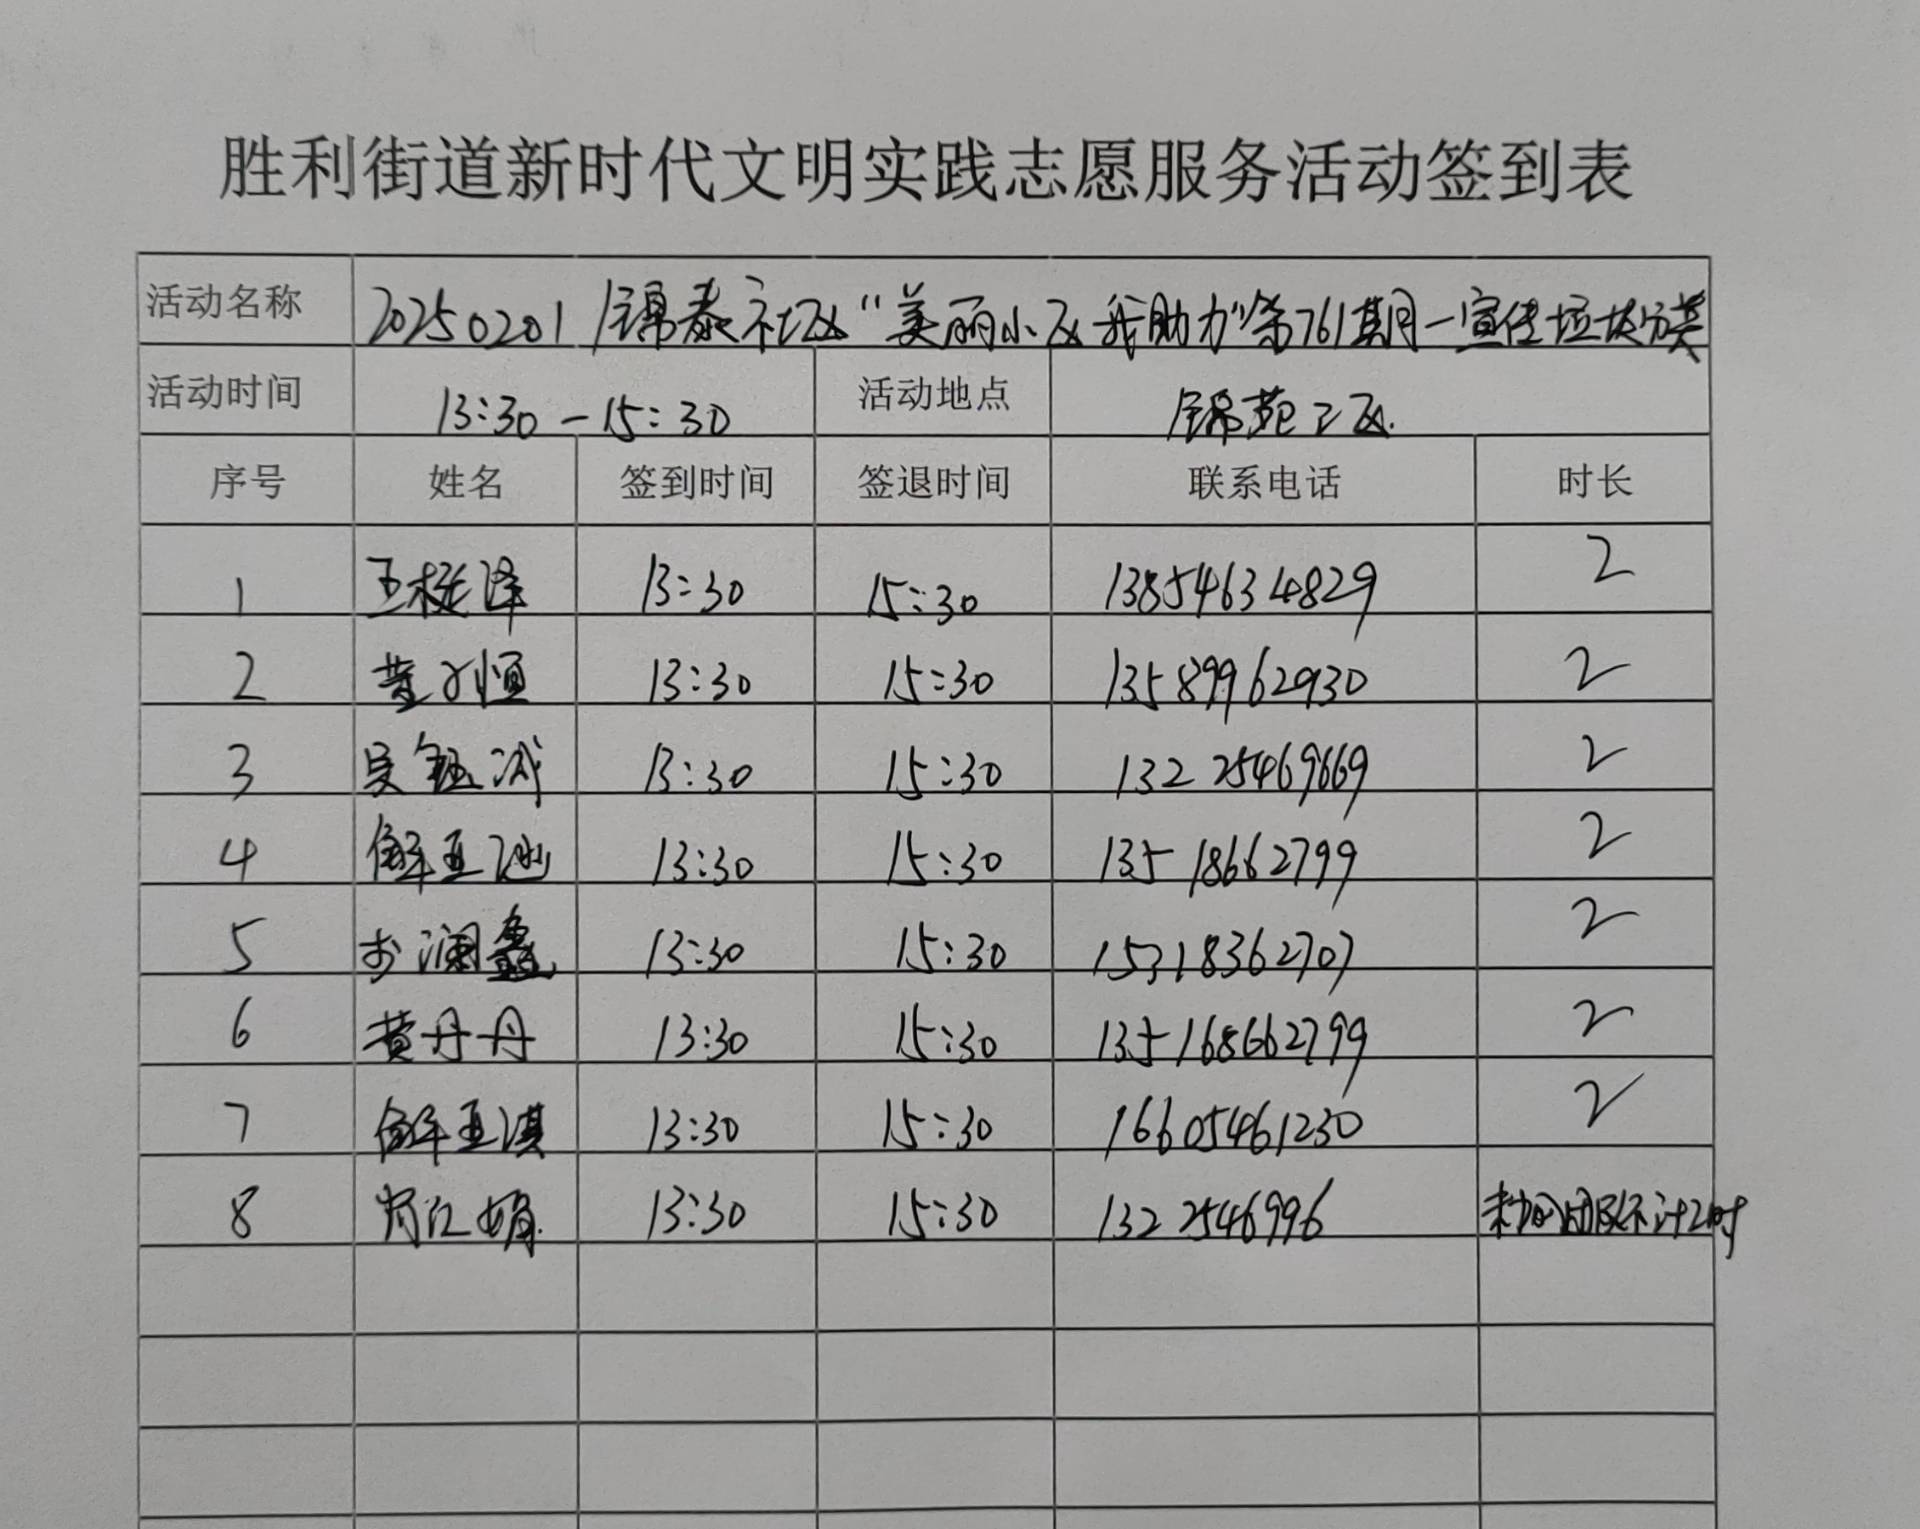 胜利街道新时代文明实践志愿服务活动签到表
活动名称 20250201 锦泰社区“美丽小区我助力”第761期一宣传垃圾分类
活动时间 13:30-15:30 活动地点 锦苑二区.
序号 姓名 签到时间 签退时间 联系电话 时长
1 王梃泽 13:30 15:30 13854634829 2
2 董子恒 13:30 15:30 13589962930 2
3 吴钰诚 13:30 15:30 13225469669 2
4 解亚 13:30 15:30 13518662799 2
5 澜鑫 13:30 15:30 15318362707 2
6 黄丹丹 13:30 15:30 135168662799 2
7 解亚淇 13:30 15:30 16605461230 2
8 江娟 13:30 15:30 1322546996 未加入团队不计2时